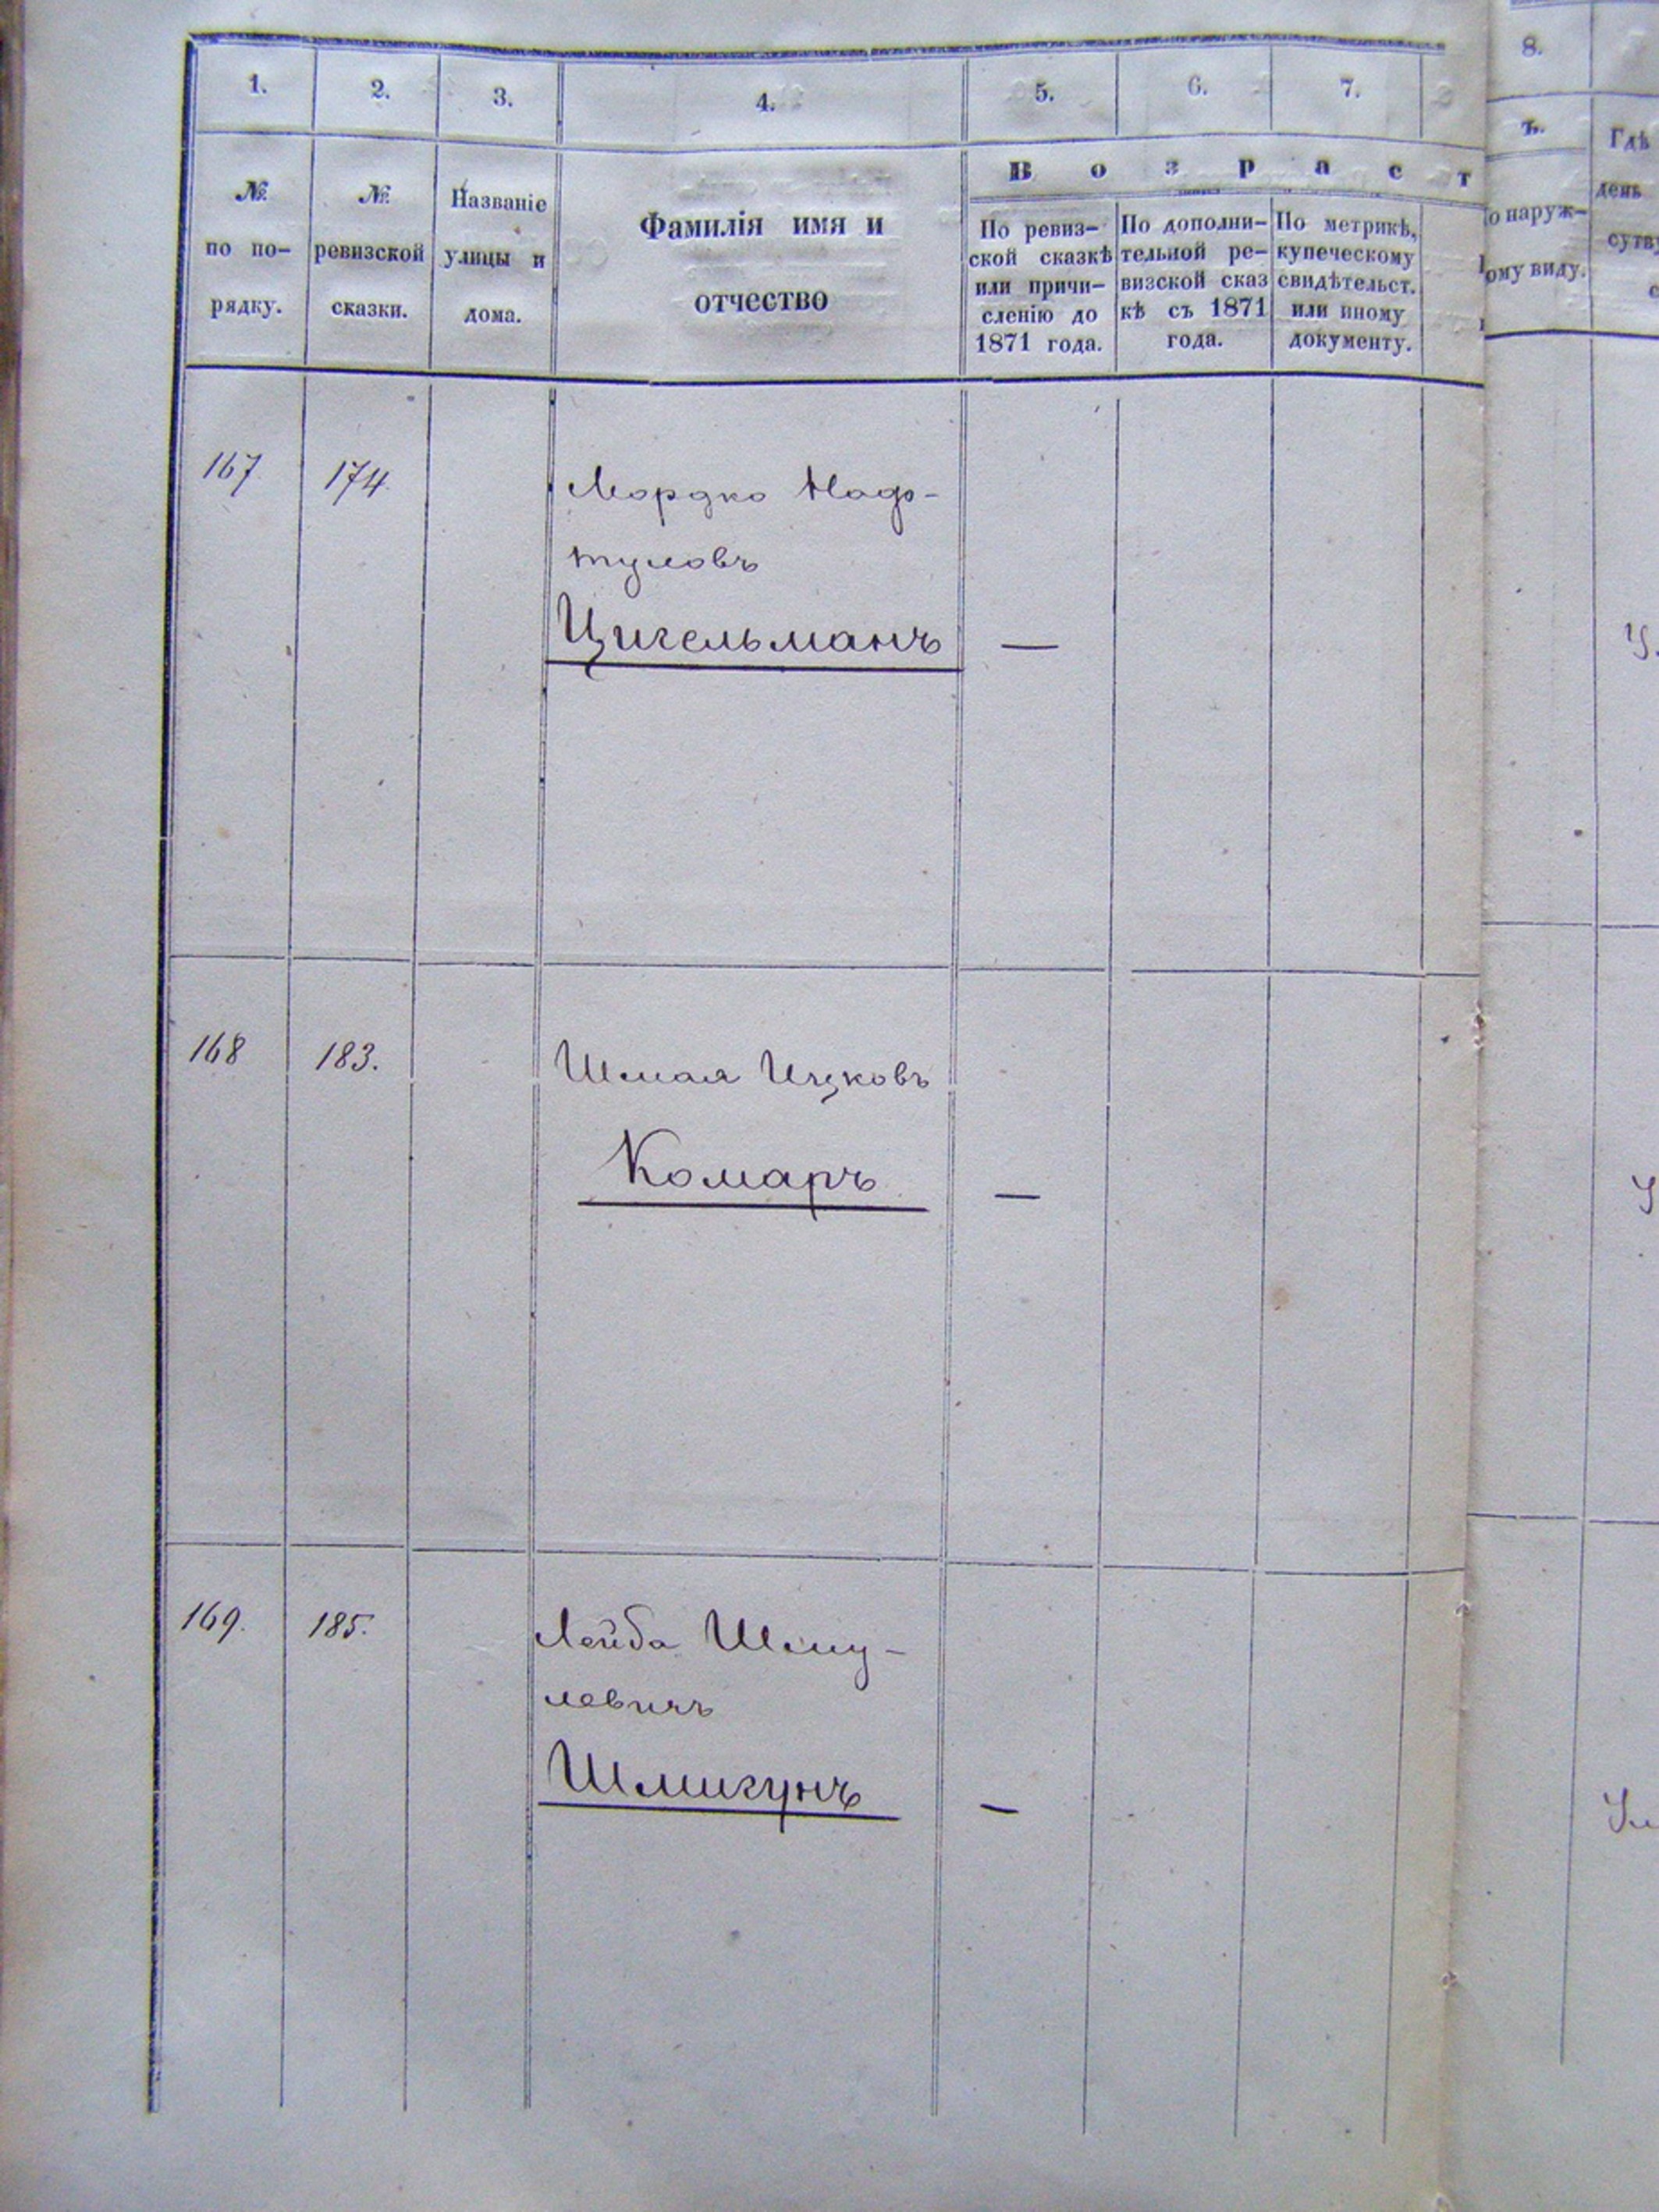 1.
2.
3.
4.
5.
6.
7.
8.
№
по по-
рядку.
№
ревизской
сказки.
Названіе
улицы и
дома.
Фамилія имя и
отчество
Возраст
ъ.
По ревиз-
ской сказкѣ
или причи-
сленію до
1871 года.
По дополни-
тельной ре-
визской сказ
кѣ съ 1871
года.
По метрикѣ,
купеческому
свидѣтельст.
или иному
документу.
о наруж-
ому виду.
Гдѣ
день
сутв
167
174.
Мордко Надф-
туловъ
Цигельманъ
—
168
183.
Шмая Ицковъ
Комаръ
—
169.
185.
Лейба Шму-
левичъ
Шмигунъ
—